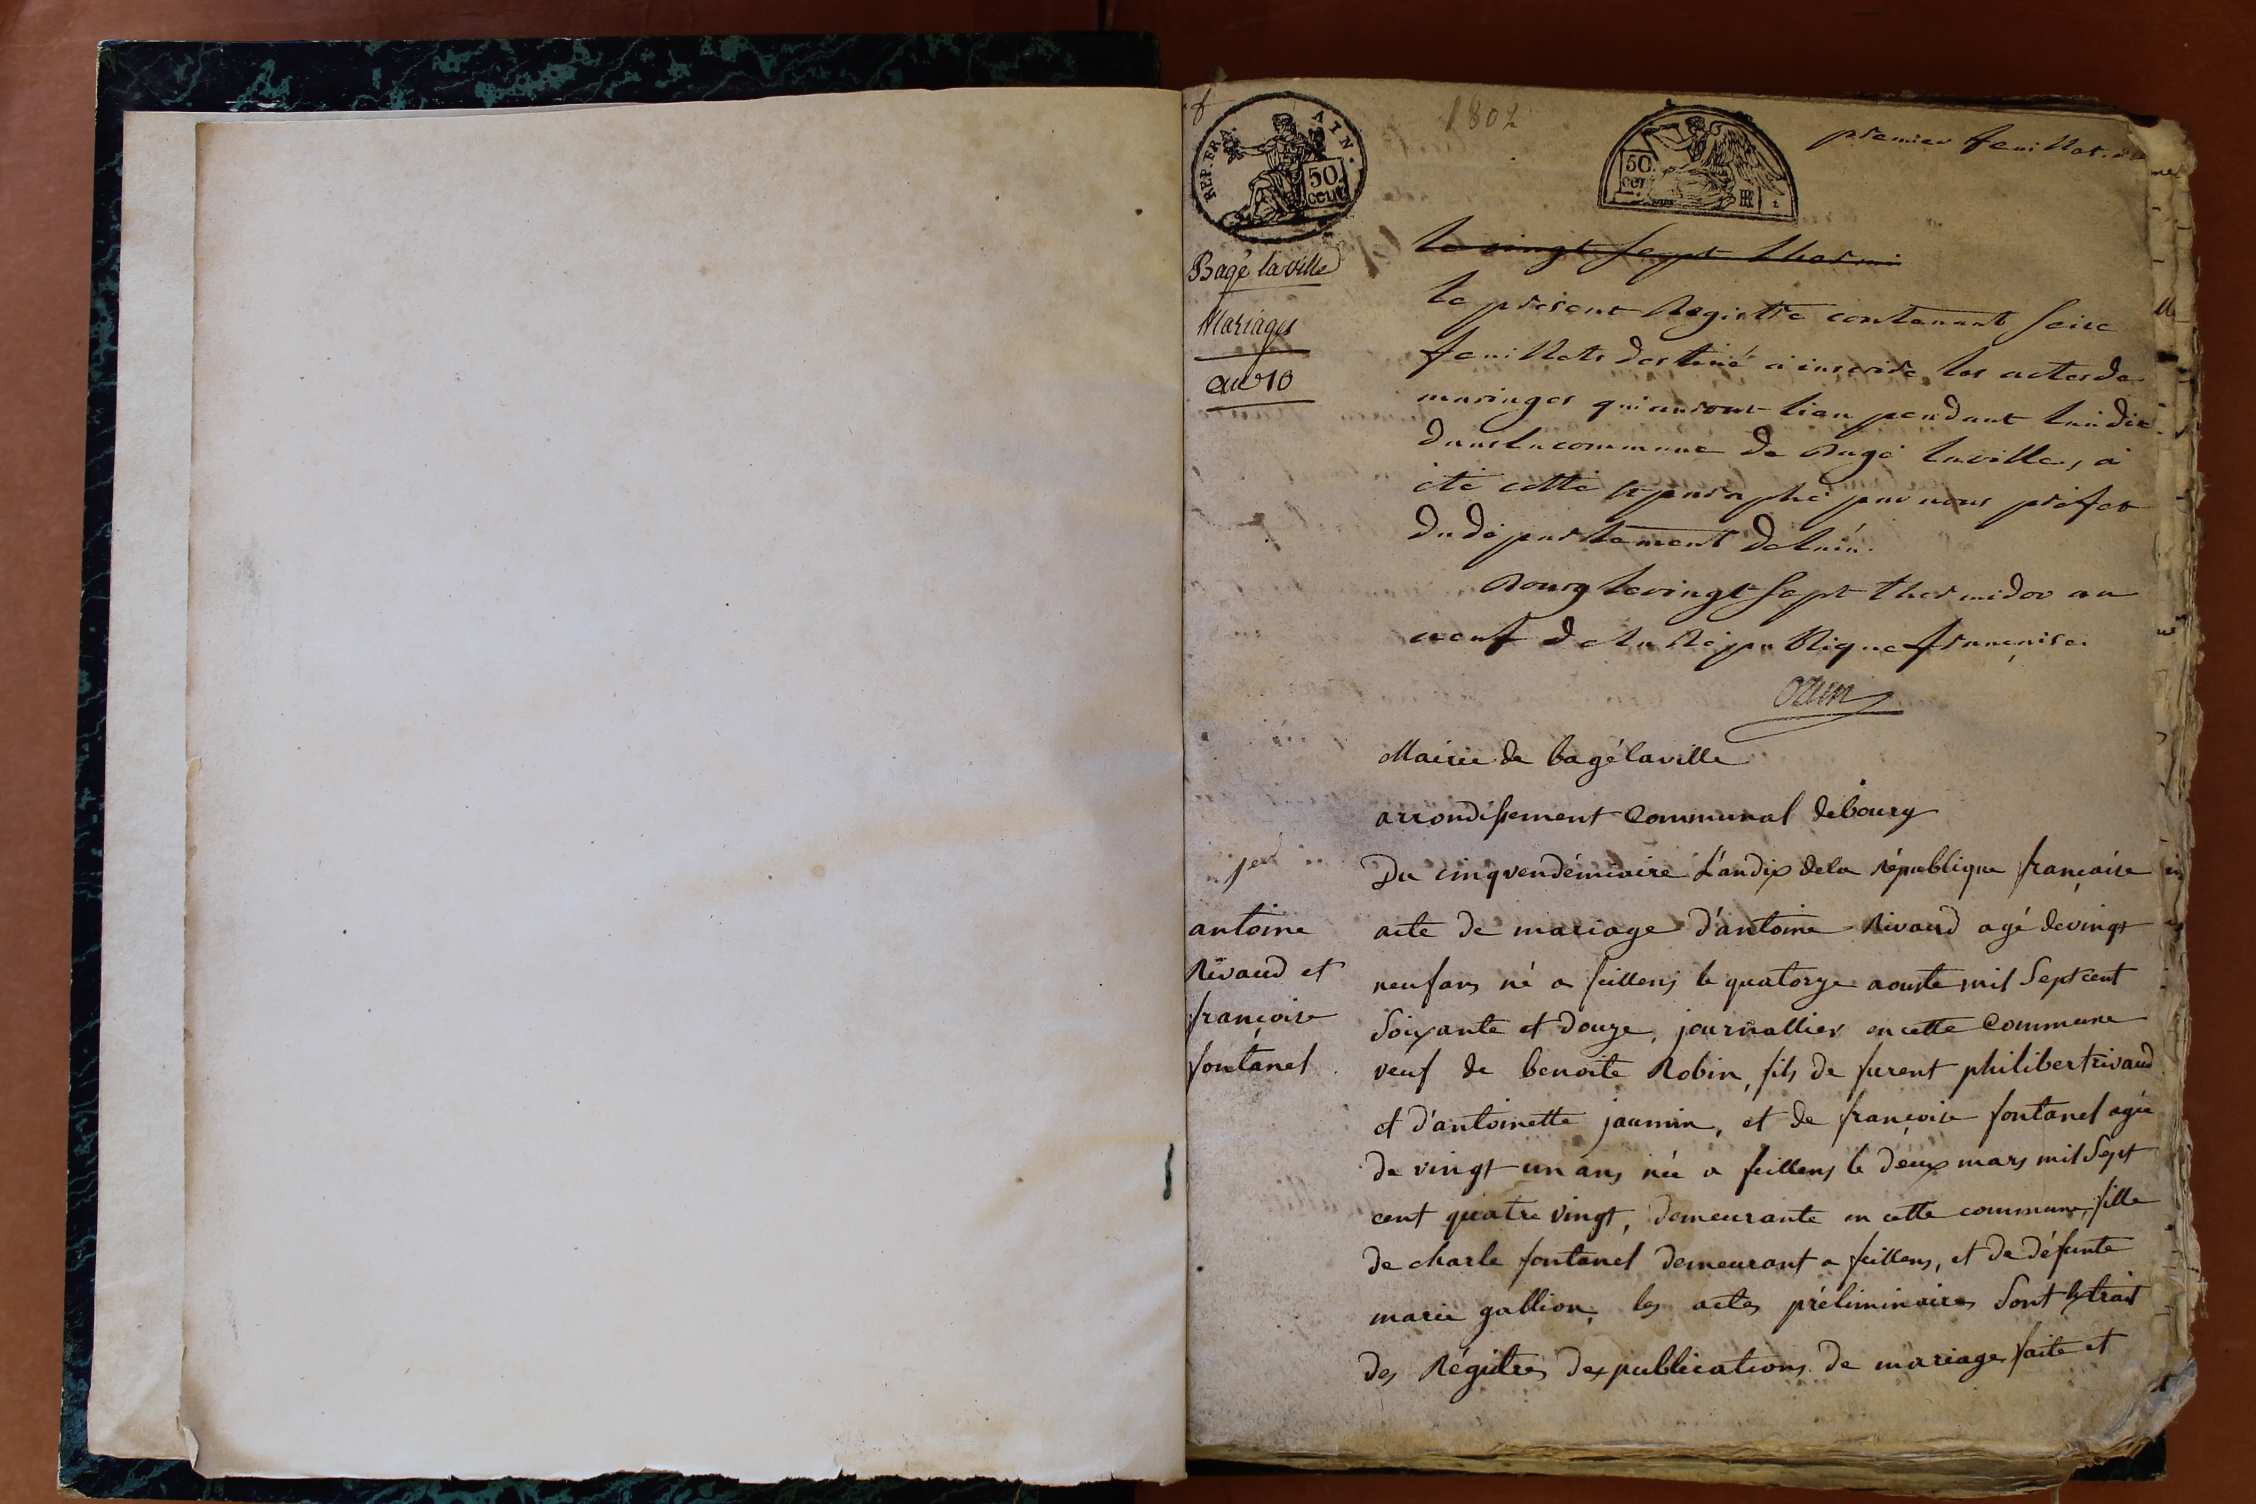 1802
REP. FRA. AIN.
50 cent
50 cen
premier feuillet
Bagé laville
Mariages
an 10
le vingt sept thermi
le présent Registre contenant seize
feuillets destiné à inscrire les actes de
mariages qui auront lieu pendant l'an dix
dans la commune de Bagé laville, à
été cotté et paraphé par nous préfet
du département de l'ain.
Bourg le vingt sept thermidor an
neuf de la République française.
ozun
Mairie de bagé laville
arrondissement Communal de bourg
1er
antoine
Rivaud et
françoise
fontanel
Du cinq vendémiaire L'an dix de la république française
acte de mariage d'antoine Rivaud agé de vingt
neuf ans né a feillens le quatorze aouste mil Sept cent
Soixante et douze, journallier en cette Commune
veuf de benoite Robin, fils de furent philibert rivaud
et d'antoinette jaumin, et de françoise fontanel agée
de vingt un ans née a feillens le deux mars mil Sept
cent quatre vingt, demeurante en cette commune, fille
de charle fontanel demeurant a feillens, et de défunte
marie gallion, les actes préliminaires Sont Extrait
des Régitres des publications de mariage faite et